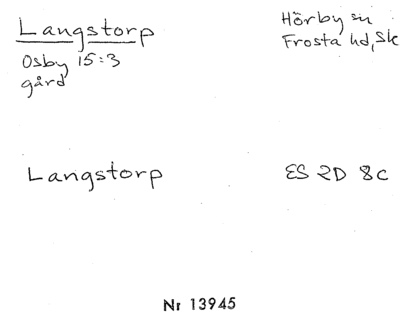 Langstorp
Hörby sn
Osby 15:3
Frosta hd, Sk
gård
Langstorp
ES 2D 8c
Nr 13945